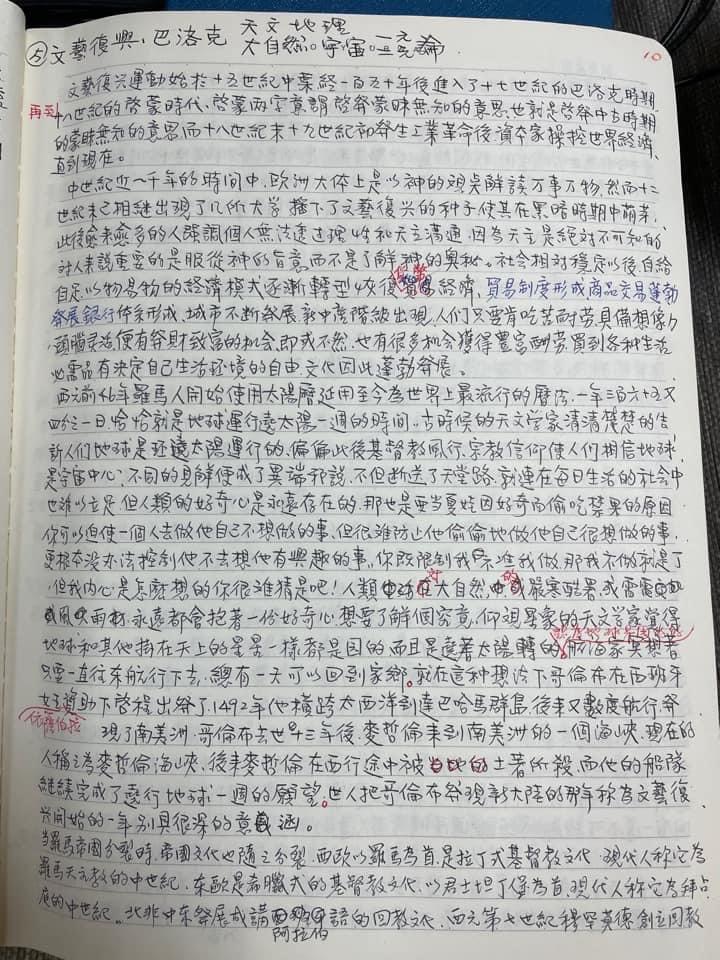 ⑤文藝復興、巴洛克 天文地理
大自然。宇宙。二元論
10
文藝復兴運動始於十五世紀中葉経一百五十年後進入了十七世紀的巴洛克時期,
再到十八世紀的啓蒙時代、啓蒙両字意謂啓発蒙昧無知的意思,也就是啓発中古時期
的蒙昧無知的意思,而十八世紀末十九世紀初発生工業革命後資本家操控世界経済,
直到現在。
中世紀近一千年的時間中,欧洲大体上是以神的視点解読万事万物,然而十二
世紀末已相継出現了几所大学,播下了文藝復兴的种子,使其在黒暗時期中萌芽,
此後愈来愈多的人強調個人無法透过理性和天主溝通,因為天主是絶対不可知的
対人来說重要的是服從神的旨意,而不是了解神的奥秘。社会相対穏定以後,自給
自足以物易物的経済模式逐漸轉型恢復貨幣経済,貿易制度形成商品交易蓬勃
発展銀行体系形成,城市不断発展,新中産階級出現,人们只要肯吃苦耐劳具備想像力
,頭腦灵活,便有発財致富的机会,即或不然,也有很多机会獲得豐富酬劳,買到各种生活
必需品,有决定自己生活环境的自由,文化因此蓬勃発展。
西元前46年羅馬人開始使用太陽曆延用至今為世界上最流行的曆法,一年三百六十五又
四分之一日,恰恰就是地球運行遶太陽一週的時間。古時候的天文学家清清楚楚的告
訴人们地球是环遶太陽運行的,偏偏此後基督教風行,宗教信仰使人们相信地球
是宇宙中心,不同的見解便成了異端邪說,不但断送了天堂路,就連在每日生活的社会中
也难以立足,但人類的好奇心是永遠存在的,那也是亜当夏娃因好奇而偷吃禁果的原因
你可以迫使一個人去做他自己不想做的事,但很难防止他偷偷地做他自己很想做的事,
更根本没办法控制他不去想他有興趣的事。你既限制我不准我做,那我不做就是了
,但我内心是怎麽想的你很难猜是吧!人類対於大自然,的嚴寒酷暑,或雷電交加
或風吹雨打,永遠都会抱著一份好奇心,想要了解個究竟,仰視星象的天文学家覚得
地球和其他掛在天上的星星一樣都是圆的而且是遶著太陽轉的,航海家冥想著
只要一直往东航行下去,總有一天可以回到家鄉。就在這种想法下哥倫布在西班牙
女王資助下啓程出発了,1492年他横跨大西洋到達巴哈馬群島,後来又數度航行発
依薩伯拉
現了南美洲,哥倫布去世十三年後,麥哲倫来到南美洲的一個海峡,現在的
人稱之為麥哲倫海峡,後来麥哲倫在西行途中被土著所殺,而他的船隊
継続完成了遶行地球一週的願望。世人把哥倫布発現新大陸的那年称為文藝復
兴開始的一年別具很深的意涵。
当羅馬帝國分裂時,帝國文化也随之分裂,西欧以羅馬為首,是拉丁式基督教文化,現代人称它為
羅馬天主教的中世紀,东欧是希臘式的基督教文化,以君士坦丁堡為首,現代人称它為拜占
庭的中世紀。北非中东発展成講阿拉伯語的回教文化,西元第七世紀穆罕莫德創立回教